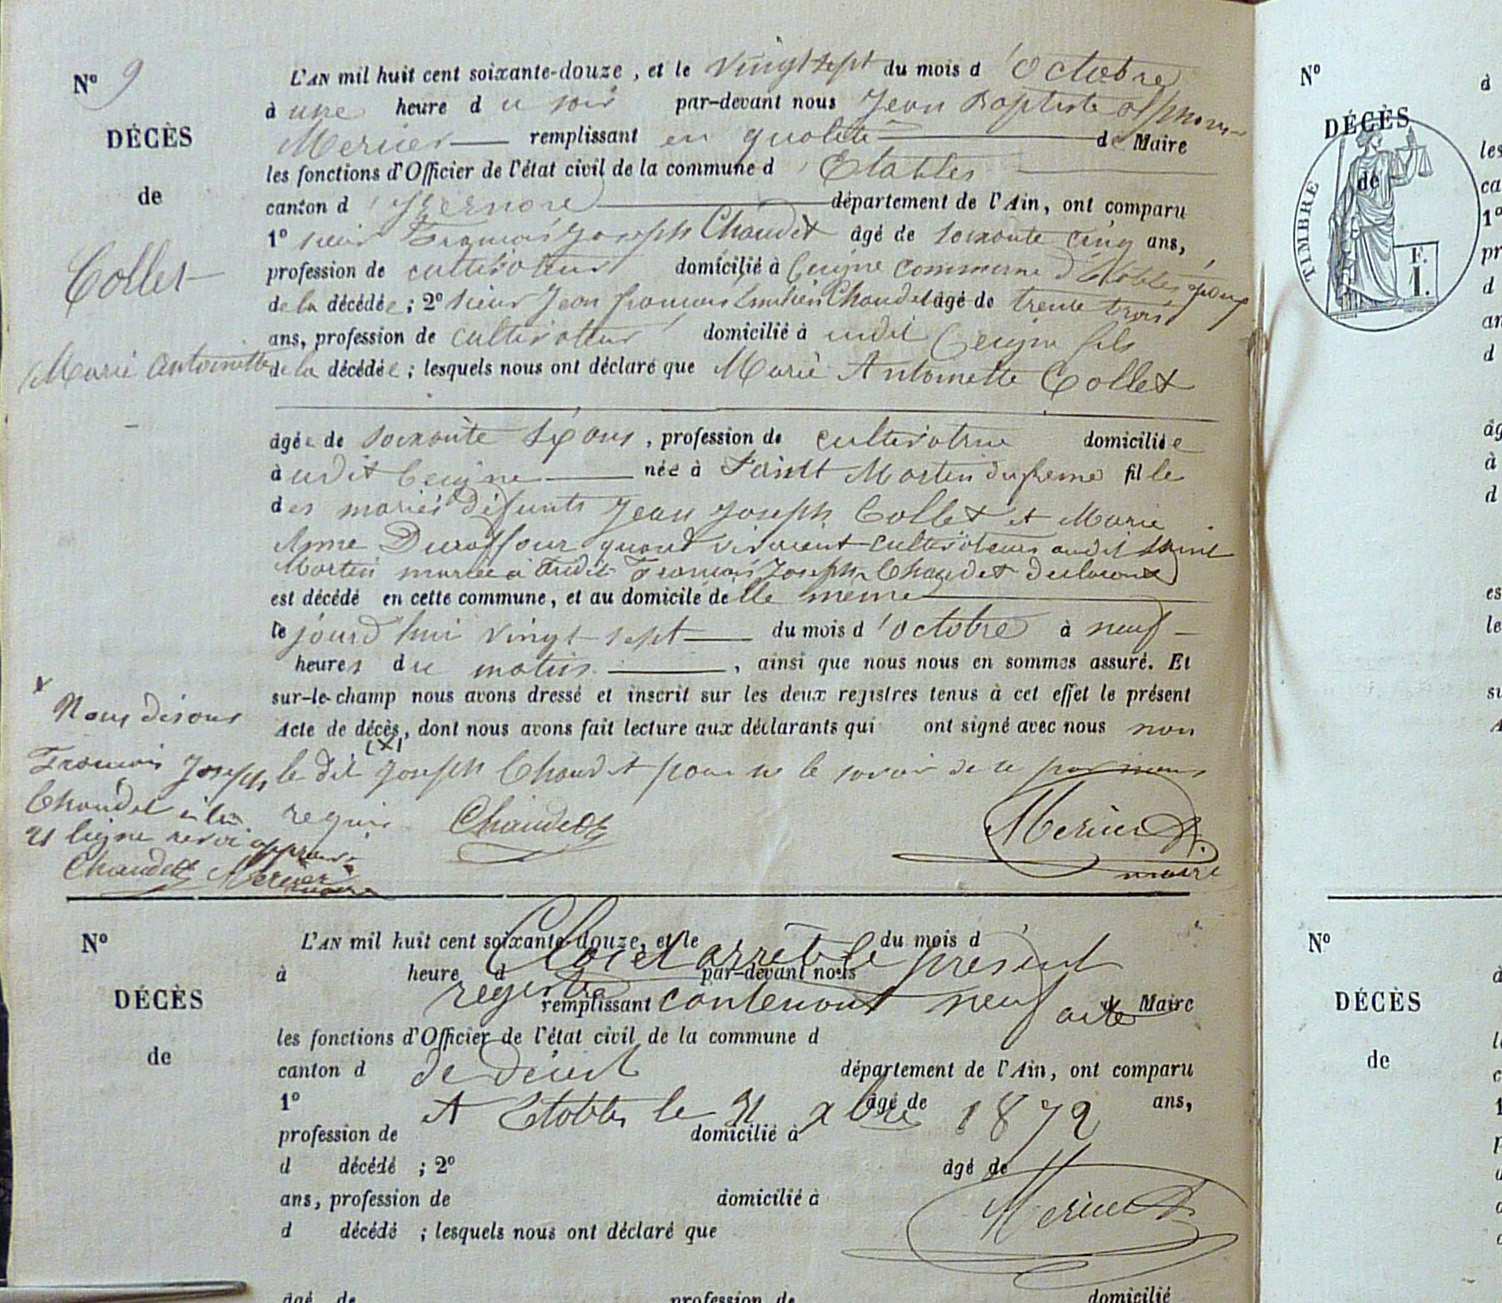 N° 9
DÉCÈS
de
Collet
Marie Antoinette
L'AN mil huit cent soixante-douze, et le vingt sept du mois d'octobre
à une heure du soir par-devant nous Jean Baptiste Alphonse
Mercier remplissant en qualité de Maire
les fonctions d'Officier de l'état civil de la commune d'Etables
canton d'Izernore département de l'Ain, ont comparu
1° sieur François Joseph Chaudet âgé de soixante cinq ans,
profession de cultivateur domicilié à Ceigne commune d'Etables époux
de la décédée; 2° sieur Jean françois Chaudet âgé de trente trois
ans, profession de cultivateur domicilié à udit Ceigne fils
de la décédée; lesquels nous ont déclaré que Marie Antoinette Collet
âgée de soixante six ans, profession de cultivatrice domiciliée
à udit Ceigne née à Saint Martin dufresne fille
des mariés défunts Jean Joseph Collet et Marie
Anne Duraffour quand vivaient cultivateurs audit Saint
Martin mariée à audit François Joseph Chaudet
est décédé en cette commune, et au domicile de elle meme
le jourd'hui vingt-sept du mois d'octobre à neuf
heures du matin, ainsi que nous nous en sommes assuré. Et
sur-le-champ nous avons dressé et inscrit sur les deux registres tenus à cet effet le présent
Acte de décès, dont nous avons fait lecture aux déclarants qui ont signé avec nous non
(X)
le dit Joseph Chaudet pour ne le savoir de ce par nous
requis Chaudet Mercier A.
maire
X Nous disons
François Joseph
Chaudet à la
21 ligne renvoi approuvé
Chaudet Mercier
N°
DÉCÈS
de
L'AN mil huit cent soixante-douze, et le du mois d
Clos et arrêté le présent
à heure d par-devant nous
registre contenant neuf acte
remplissant de Maire
les fonctions d'Officier de l'état civil de la commune d
canton d département de l'Ain, ont comparu
de décès
1° âgé de ans,
A Etables le 31 xbre 1872
profession de domicilié à
d décédé ; 2° âgé de
ans, profession de domicilié à
Mercier A.
d décédé ; lesquels nous ont déclaré que
âgé de profession de domicilié
N°
DÉCÈS
de
TIMBRE
1 F.
N°
DÉCÈS
de